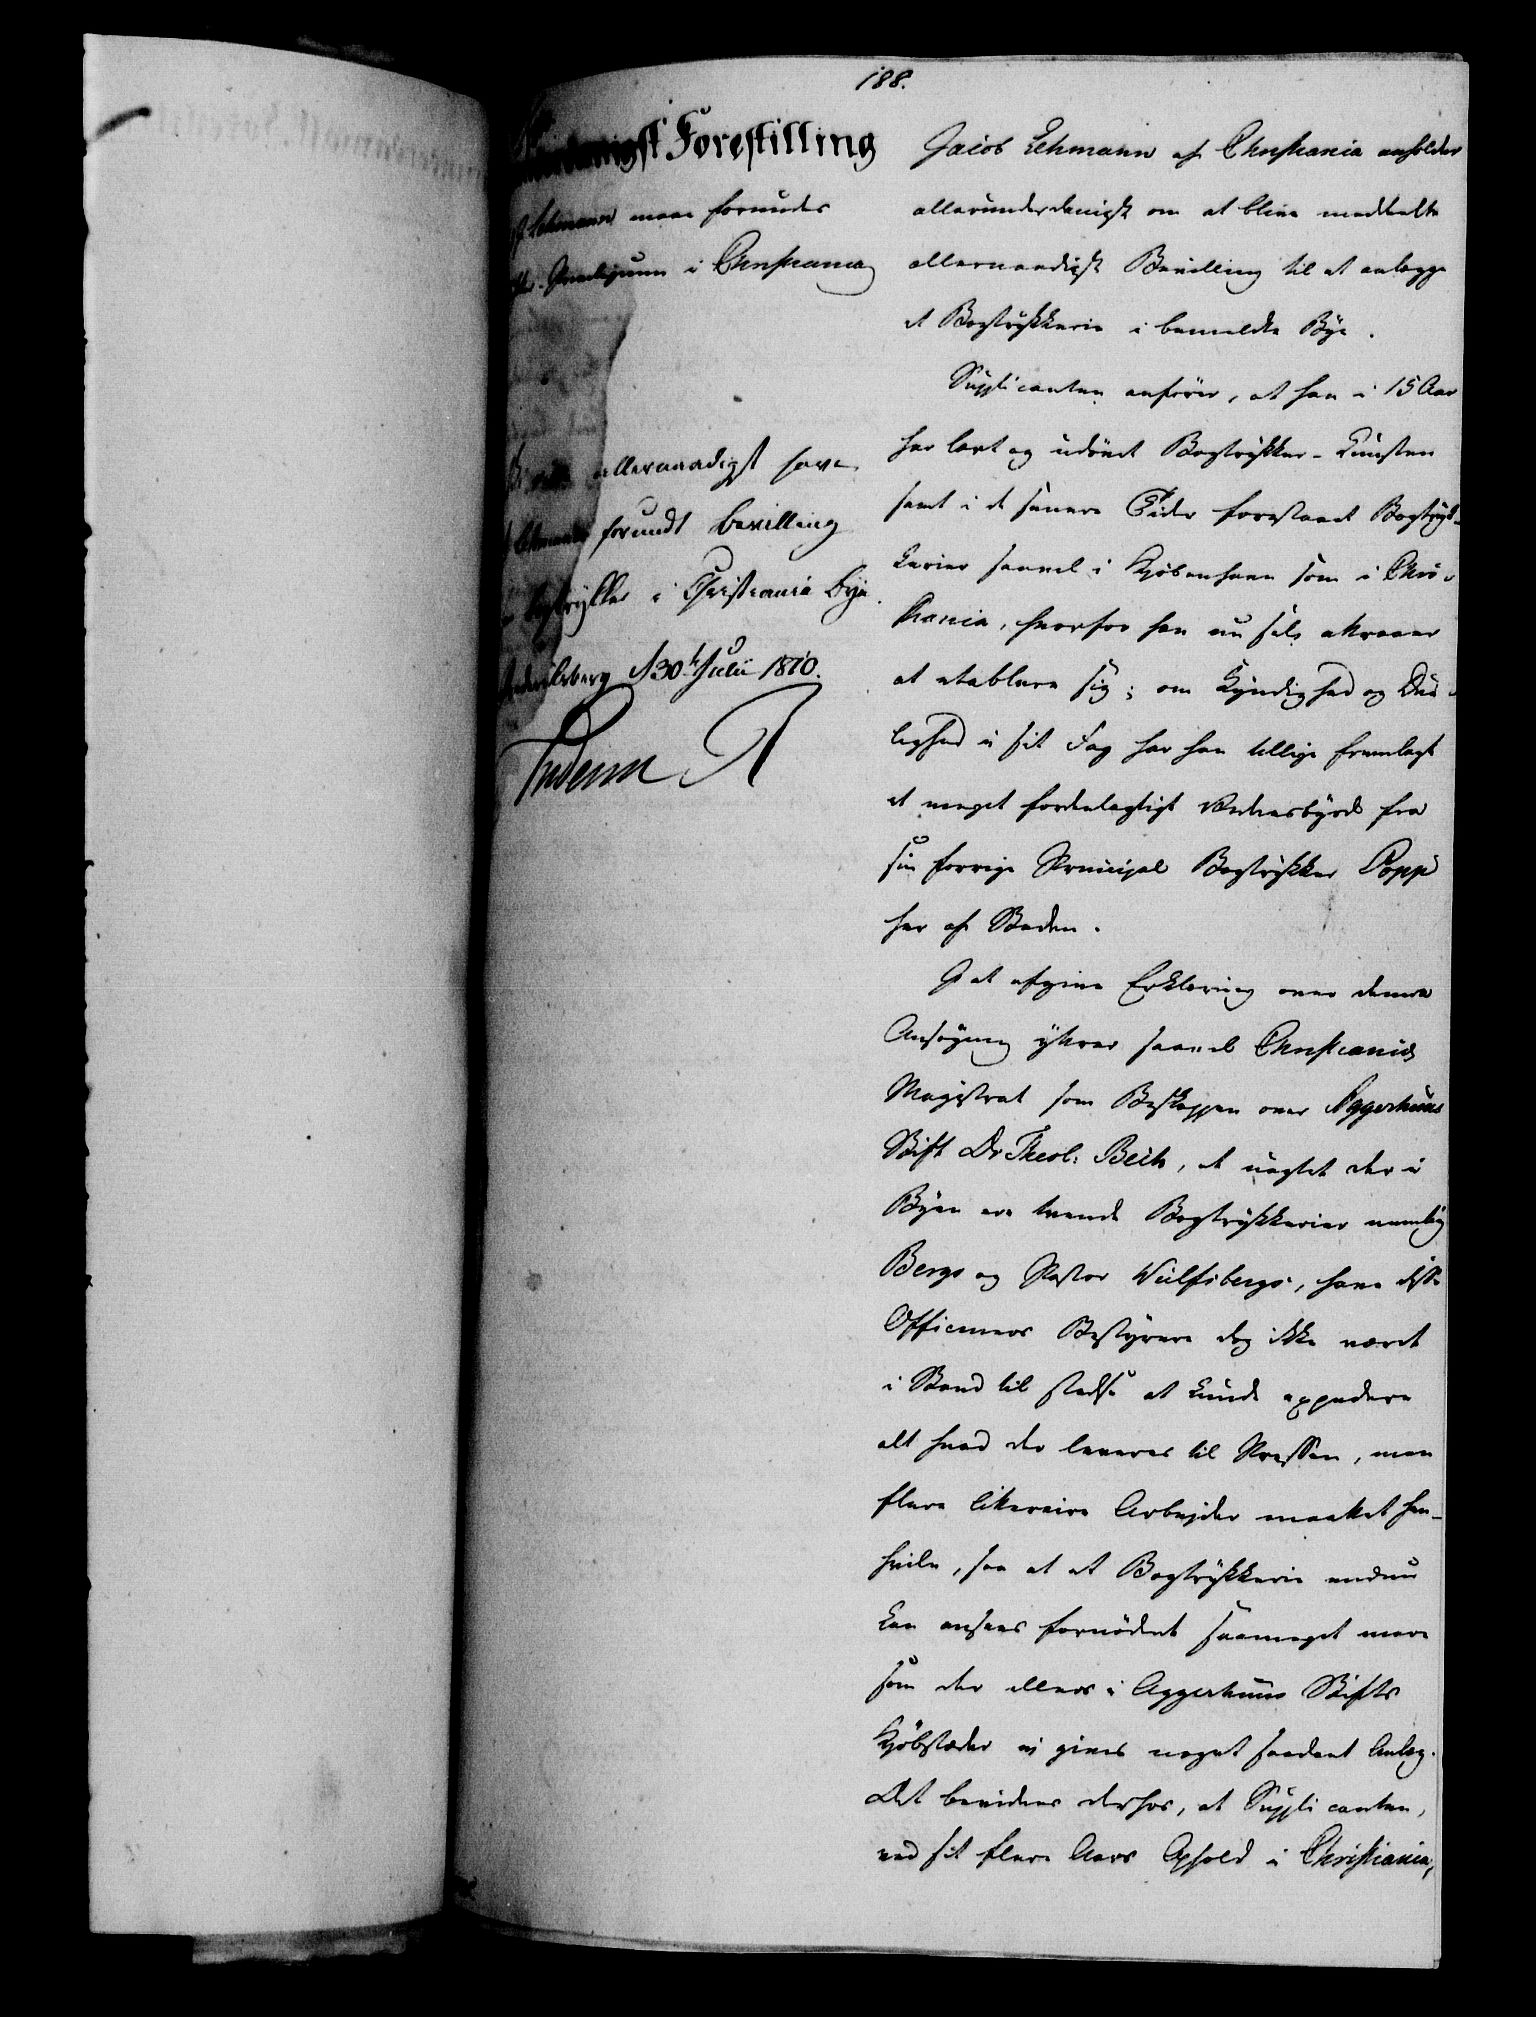 188.
Forestilling
Lehmann maae forundes
i Christiania
allernaadigst have
Lehmann forundt bevilling
Bogtrykker i Christiania Bye.
Frederiksberg d 30te Julii 1810.
Frederik R
Jacob Lehmann af Christiania anholder
allerunderdanigst om at blive meddeelt
allernaadigst Bevilling til at anlægge
et Bogtrykkerie i bemeldte Bye.
Supplicanten anfører, at han i 15 Aar
har lært og udøvet Bogtrykker-Kunsten
samt i de senere Tider forestaaet Bogtryk-
kerier saavel i Kjøbenhavn som i Chri-
stiania, hvorfor han nu selv attraaer
at etablere sig; om Kyndighed og Due-
lighed i sit Fag har han tillige fremlagt
et meget fordelagtigt Vidnesbyrd fra
sin forrige Principal Bogtrykker Popp
her af Staden.
I at afgive Erklæring over denne
Ansøgning yttrer saavel Christiania
Magistrat som Biskoppen over Aggerhuus
Stift Dr Theol: Bech, at uagtet der i
Byen ere tvende Bogtrykkerier nemlig
Bergs og Pastor Wulfsbergs, have disse
Officiners Bestyrere dog ikke været
i Stand til stedse at kunde expedere
alt hvad der leveres til Pressen, men
flere literaire Arbejder maattet hen-
hvile, saa at et Bogtrykkerie endnu
kan ansees fornødent saameget mere
som der ellers i Aggerhuus Stifts
Kjøbstæder ej gives noget saadant Anlæg.
Det bevidnes derhos, at Supplicanten,
ved sit flere Aars Ophold i Christiania,